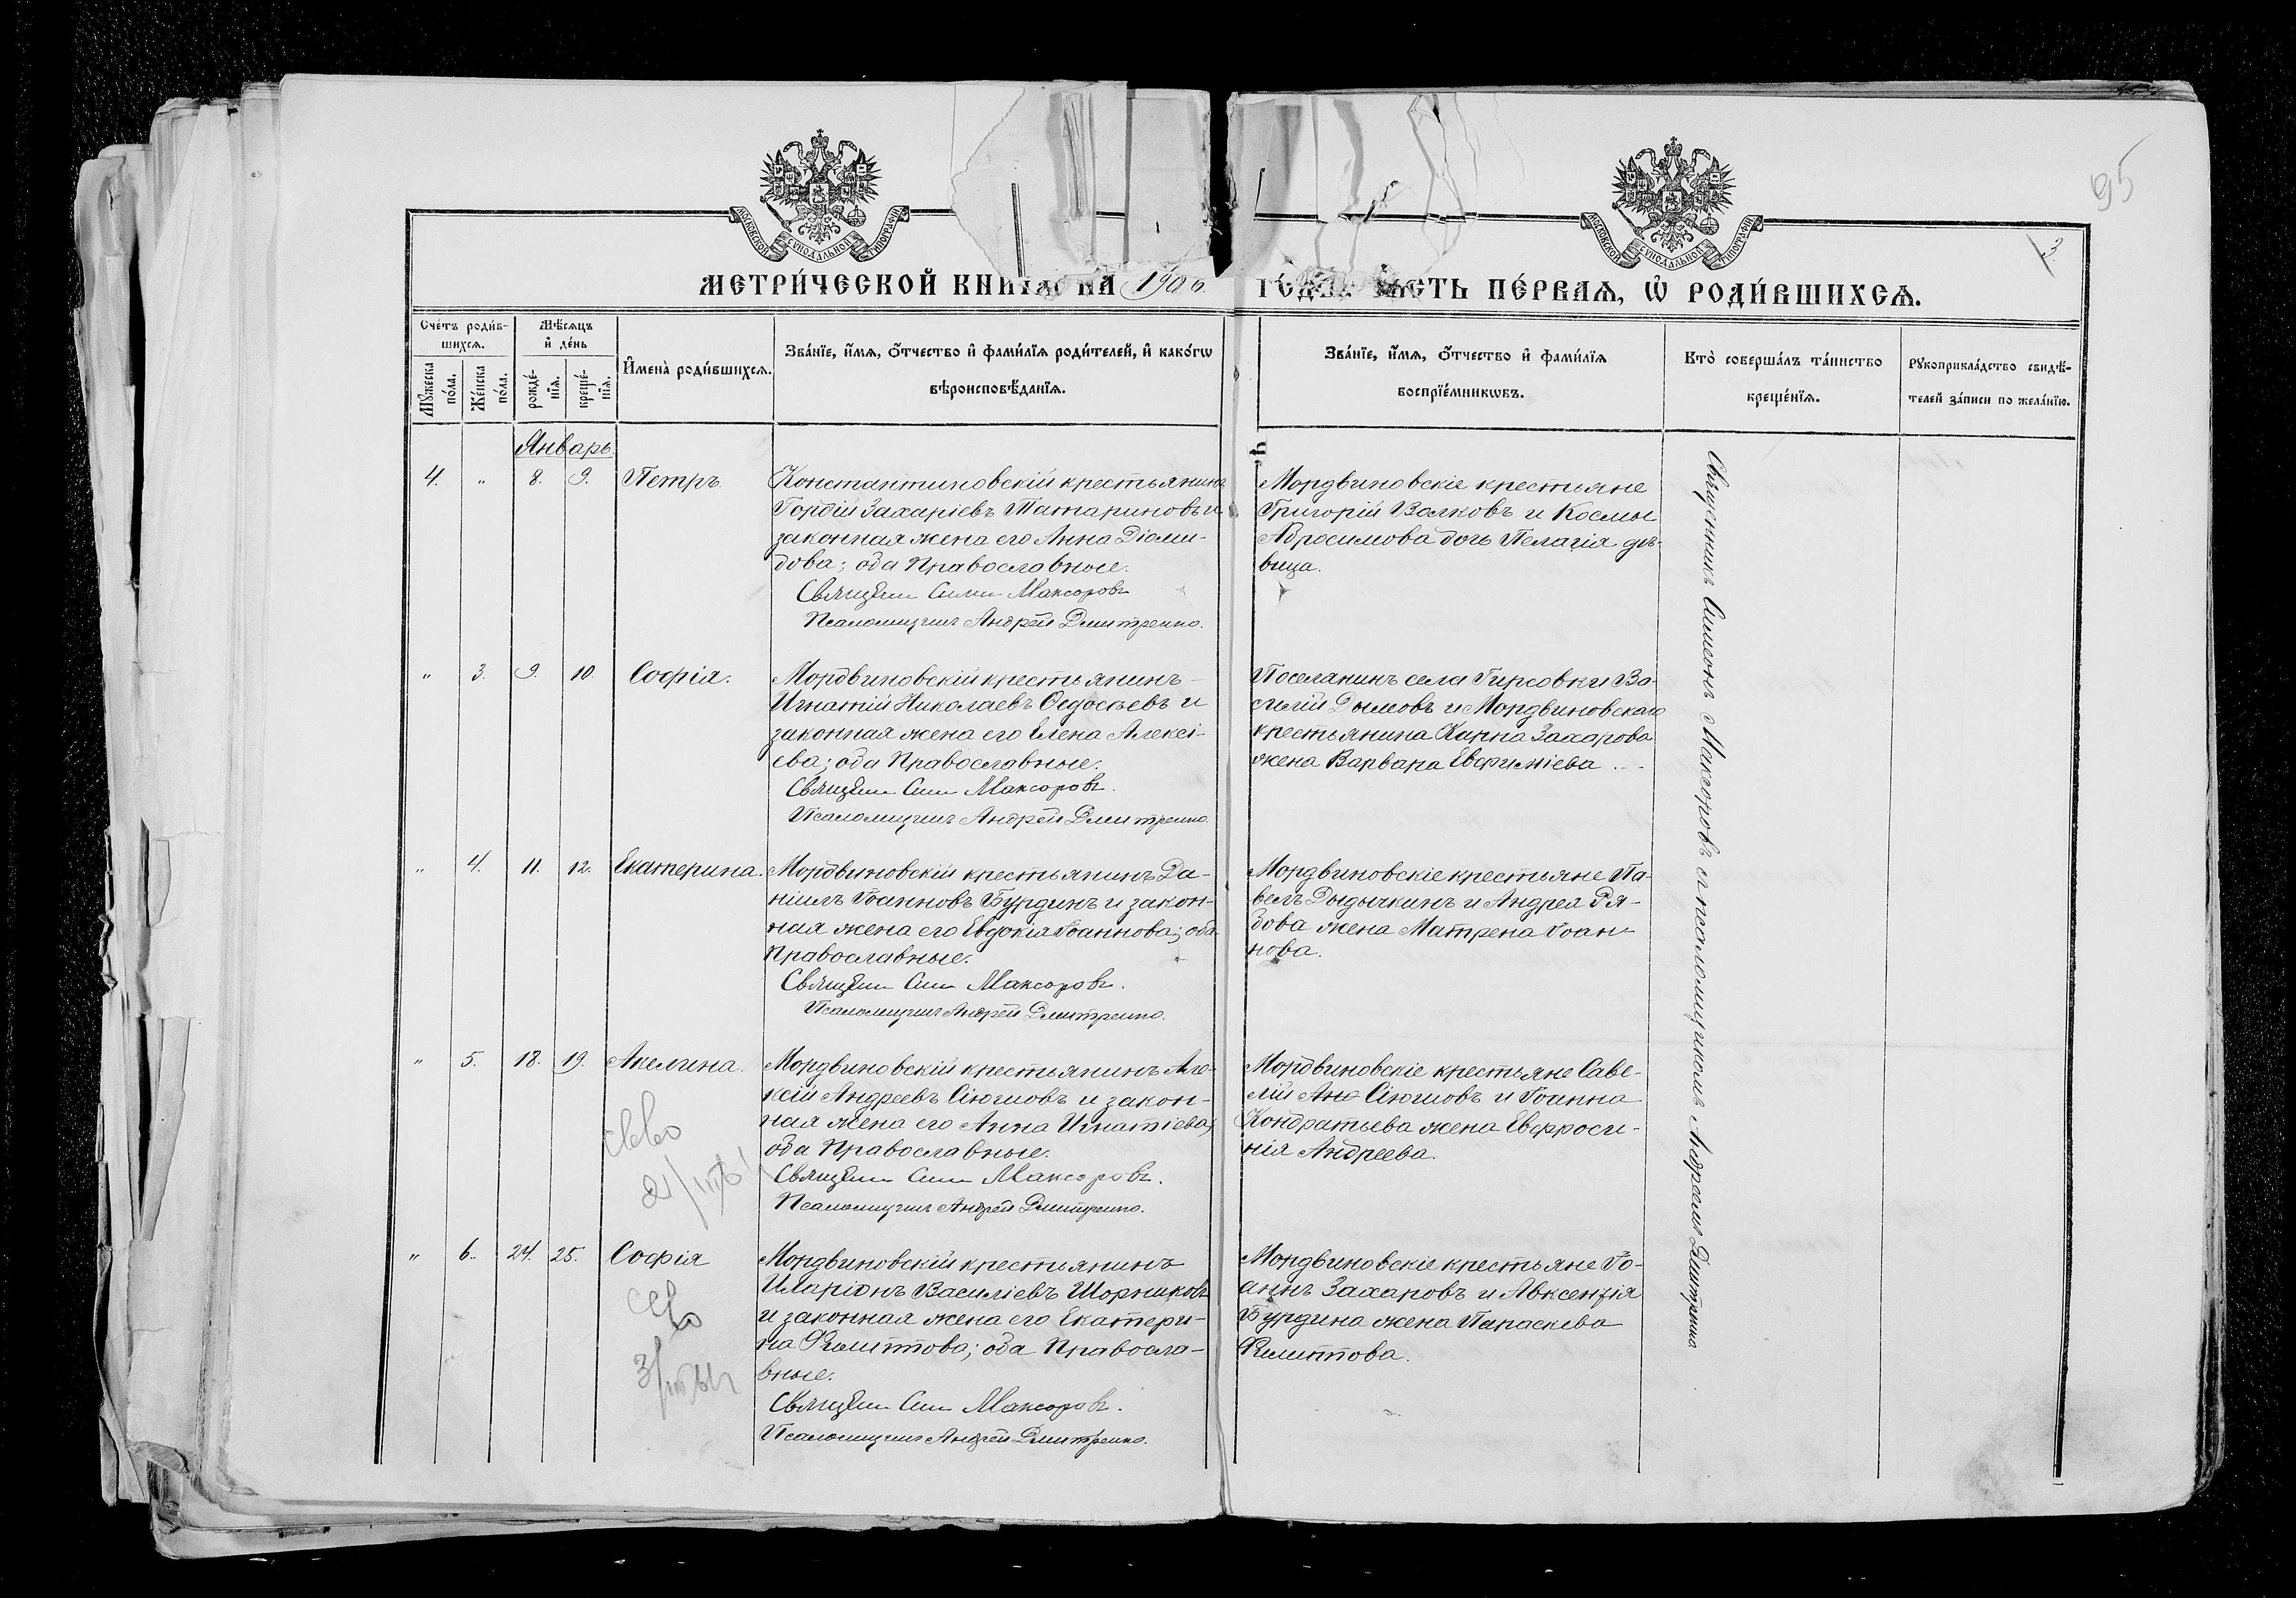 95
3.
МОСКОВСКОЙ СУНОДАЛЬНОЙ ТИПОГРАФІИ
МОСКОВСКОЙ СУНОДАЛЬНОЙ ТИПОГРАФІИ
МЕТРИ́ЧЕСКОЙ КНИГИ НА 1906 ГО́ДЪ ЧАСТЬ ПЕ́РВАѦ, Ѡ҆ РОДИ́ВШИХСѦ.
Сче́тъ роди́в-
шихсѧ.
Мꙋ́жеска
по́ла.
Же́нска
по́ла.
Мѣ́сѧцъ
и҆ де́нь
рожде́-
нїѧ.
креще́-
нїѧ.
И҆мена̀ роди́вшихсѧ.
Зва́нїе, и҆́мѧ, ѻ҆́тчество и҆ фами́лїѧ роди́телей, и҆ како́гѡ
вѣроисповѣ́данїѧ.
Зва́нїе, и҆́мѧ, ѻ҆́тчество и҆ фами́лїѧ
воспрїе́мникѡвъ.
Кто̀ соверша́лъ та́инство
креще́нїѧ.
Рꙋкоприкла́дство свидѣ́-
телей за́писи по жела́нїю.
Январь.
4. " 8. 9. Петръ.
Константиновскій крестьянинъ
Гордій Захаріевъ Татариновъ и
законная жена его Анна Діоми-
дова; оба Православные.
Священ Сим Максоровъ
Псаломщикъ Андрей Дмитренко.
Мордвиновскіе крестьяне
Григорій Волковъ и Космы
Абросимова дочь Пелагія дѣ-
вица.
" 3. 9. 10. Софія.
Мордвиновскій крестьянинъ
Игнатій Николаевъ Ѳедосѣевъ и
законная жена его Елена Алексі-
ева; оба Православные.
Священ Сим Максоровъ.
Псаломщикъ Андрей Дмитренко.
Поселянинъ села Гирсовки Ва-
силій Дымовъ и Мордвиновскаго
крестьянина Карпа Захарова
жена Варвара Евфиміева.
" 4. 11. 12. Екатерина.
Мордвиновскій крестьянинъ Да-
ніилъ Іоанновъ Бурдинъ и закон-
ная жена его Евдокія Іоаннова; оба
Православные.
Священ Сим Максоровъ.
Псаломщикъ Андрей Дмитренко.
Мордвиновскіе крестьяне Па-
велъ Дыдычкинъ и Андрея Ря-
бова жена Матрена Іоан-
нова.
" 5. 18. 19. Акелина.
Мордвиновскій крестьянинъ Але-
ксій Андреевъ Сіюшовъ и закон-
ная жена его Анна Игнатіева;
оба Православные.
Священ Сим Максоровъ.
Псаломщикъ Андрей Дмитренко.
Мордвиновскіе крестьяне Саве-
лій Сіюшовъ и Іоанна
Кондратьева жена Евфроси-
нія Андреева.
" 6. 24. 25. Софія
Мордвиновскій крестьянинъ
Иларіонъ Василіевъ Шорниковъ
и законная жена его Екатери-
на Филиппова; оба Правосла-
вные.
Священ Сим Максоровъ.
Псаломщикъ Андрей Дмитренко.
Мордвиновскіе крестьяне Іо-
аннъ Захаровъ и Авксентія
Бурдина жена Параскева
Филиппова.
Священникъ Симеонъ Максоровъ съ псаломщикомъ Андреемъ Дмитренко